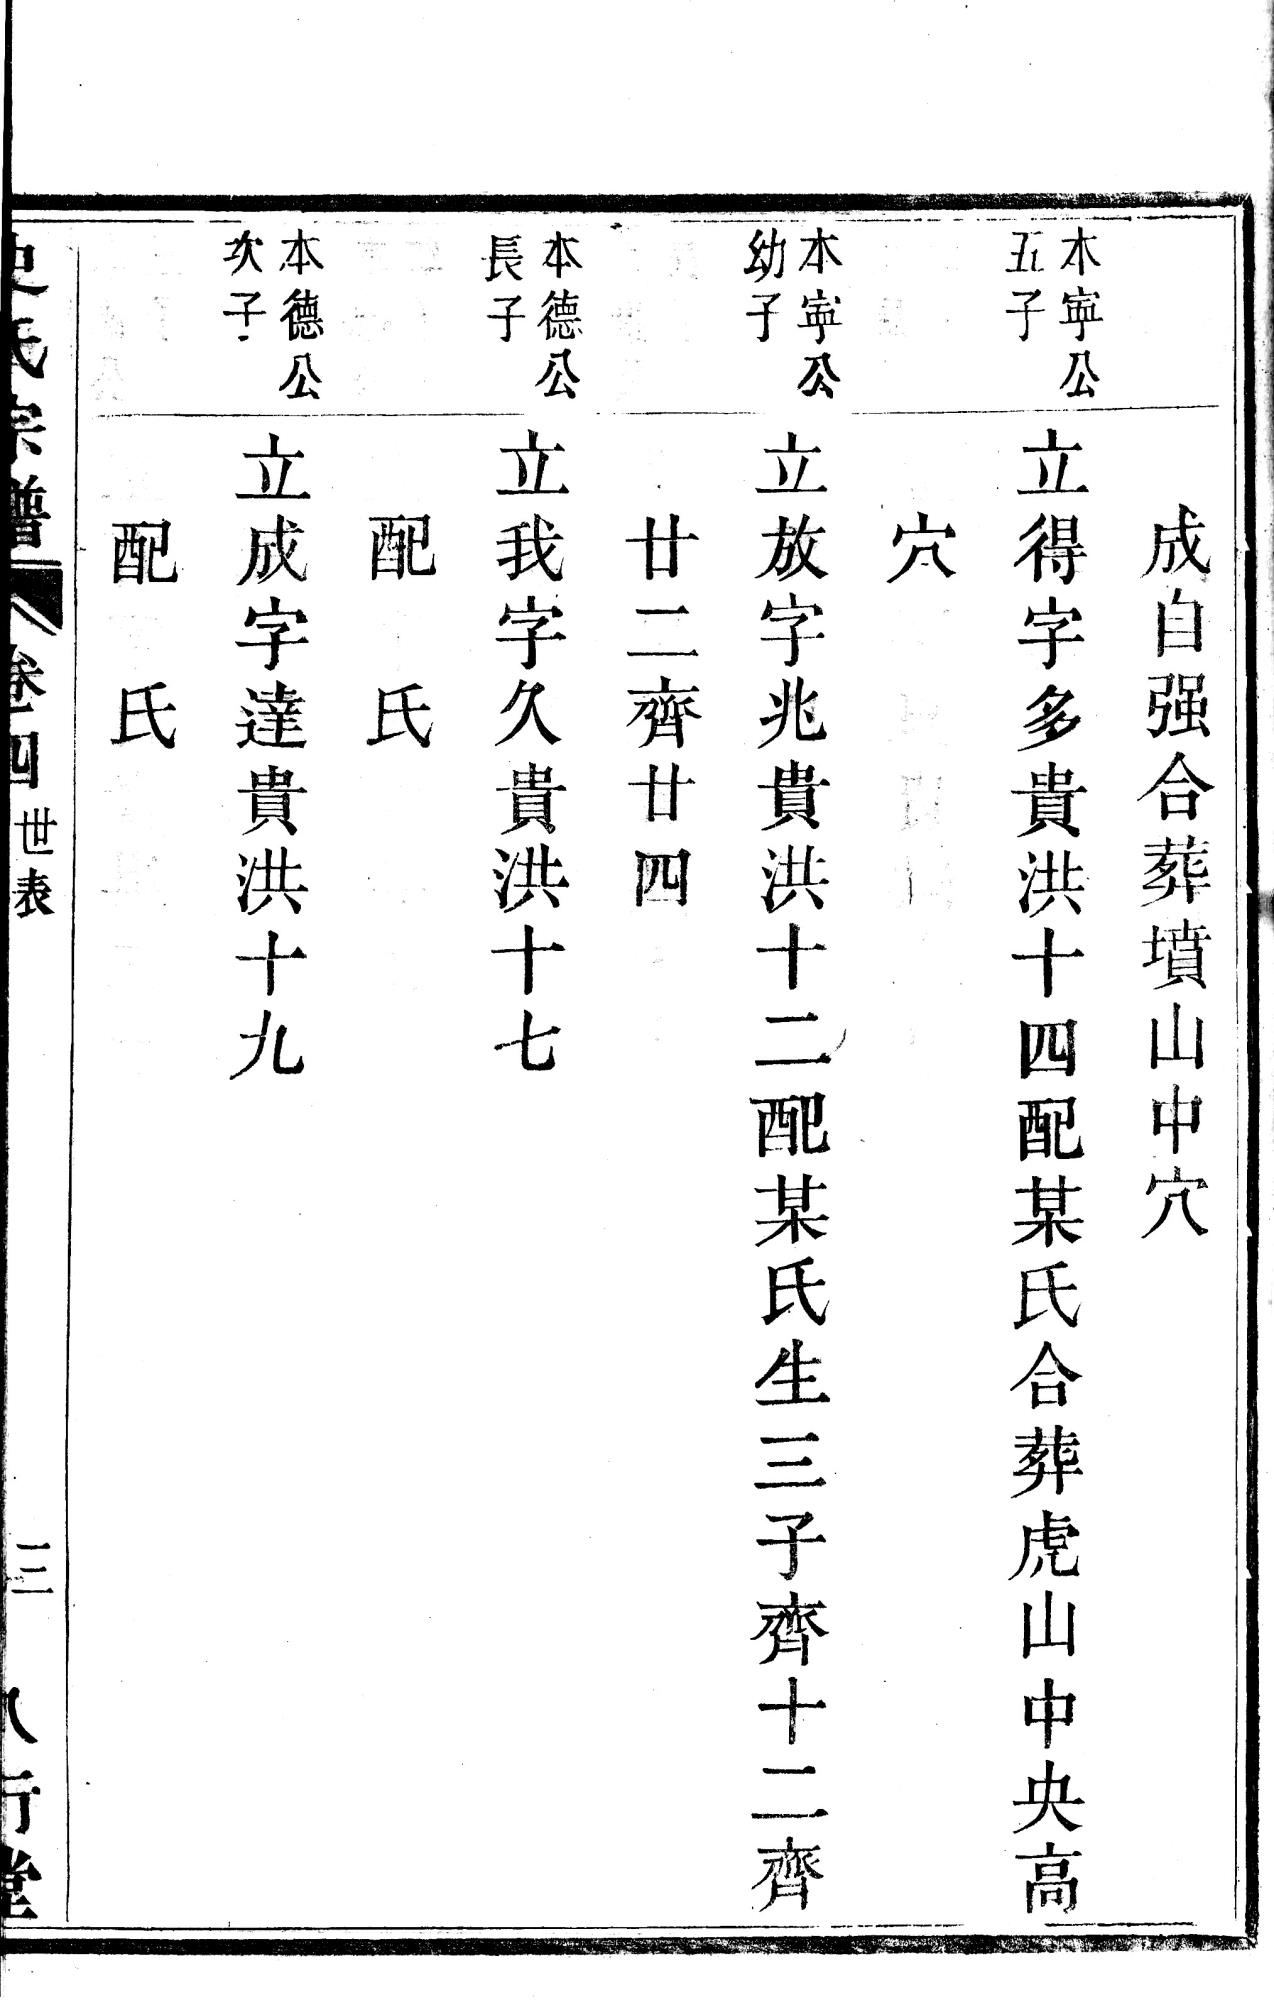 成自强合葬墳山中穴
本寧公
五子
立得字多貴洪十四配某氏合葬虎山中央高
穴
本寧公
幼子
立放字兆貴洪十二配某氏生三子齊十二齊
廿二齊廿四
本德公
長子
立我字久貴洪十七
配　氏
本德公
次子
立成字達貴洪十九
配　氏
史氏宗譜　卷四　世表　三　八行堂